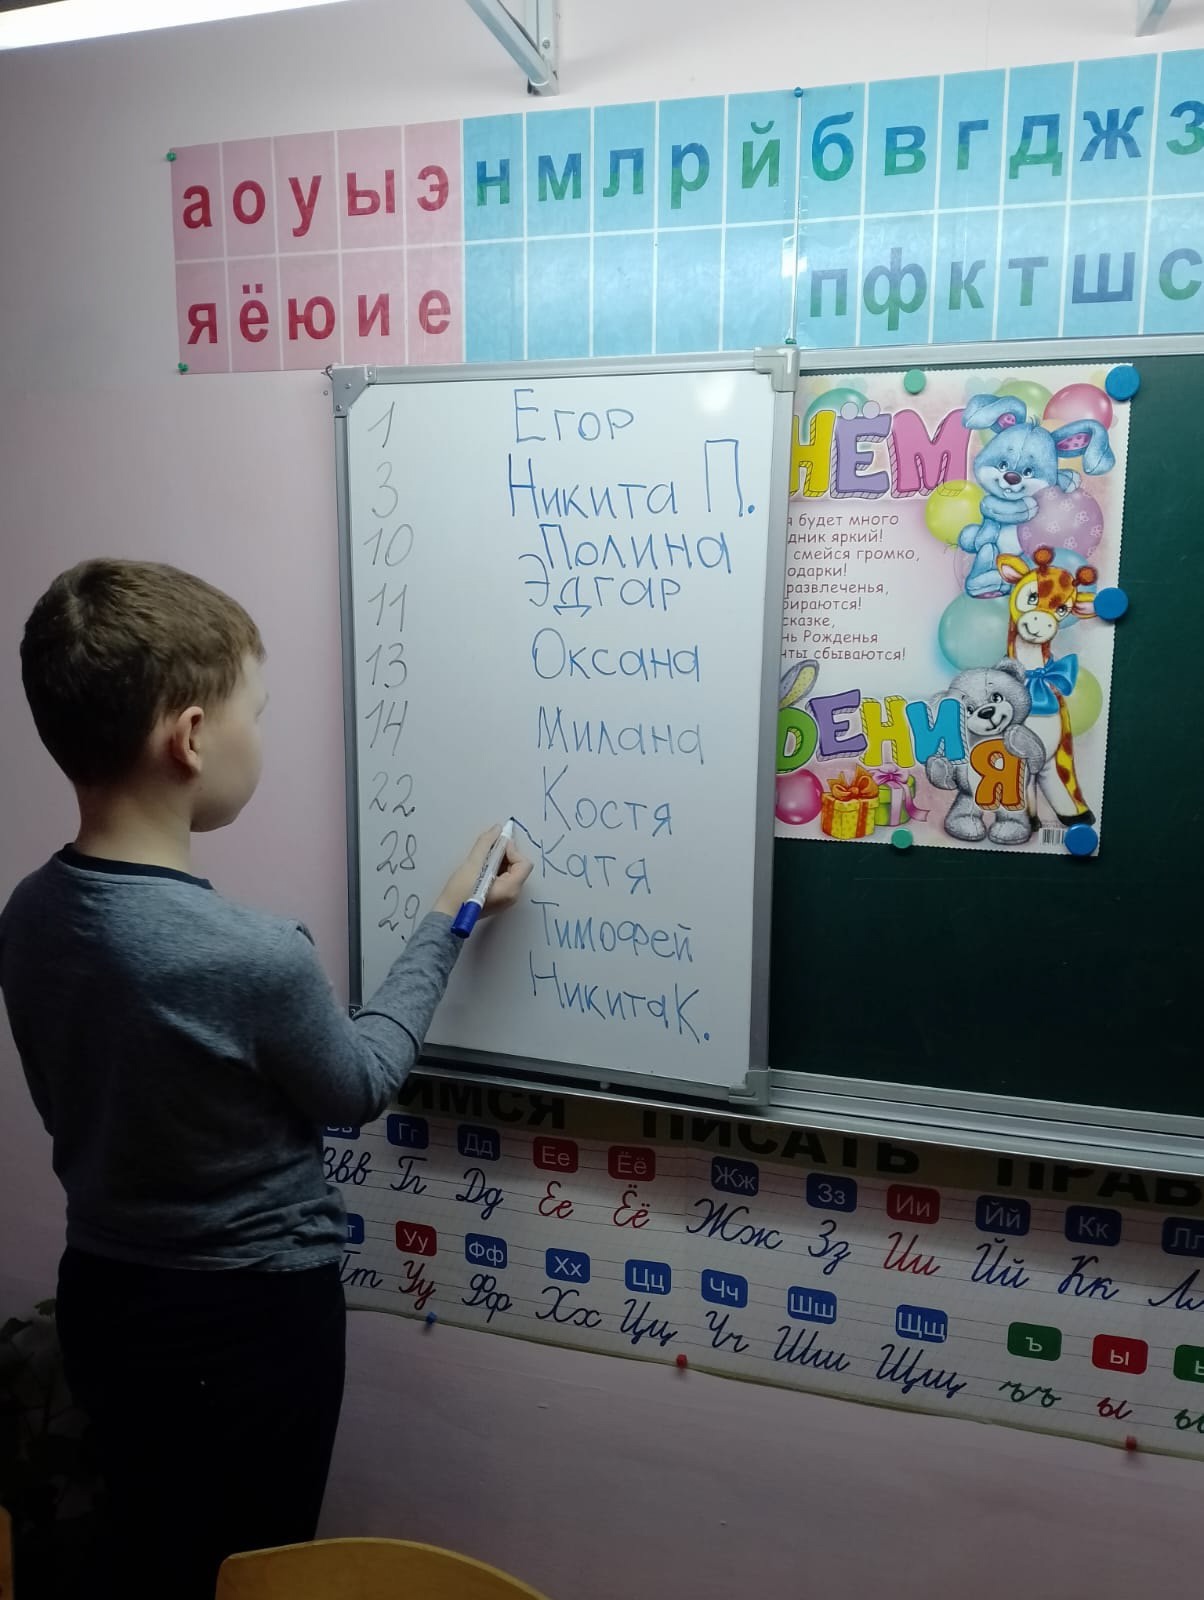 а о у ы э н м л р й б в г д ж з
я ё ю и е п ф к т ш с
1 Егор
3 Никита П.
10 Полина
11 Эдгар
13 Оксана
14 Милана
22 Костя
28 Катя
29 Тимофей
Никита К.
НЁМ
я будет много
дник яркий!
смейся громко,
одарки!
развлеченья,
бираются!
сказке,
нь Рожденья
нты сбываются!
ДЕНИЯ
ИМСЯ ПИСАТЬ ПРАВ
Вв Гг Дд Ее Ёё Жж Зз Ии Йй Кк Лл
Вв Гг Дд Ее Ёё Жж Зз Ии Йй Кк Л
т Уу Фф Хх Цц Чч Шш Щщ ъ ы ь
Тт Уу Фф Хх Цц Чч Шш Щщ ъъ ы ь